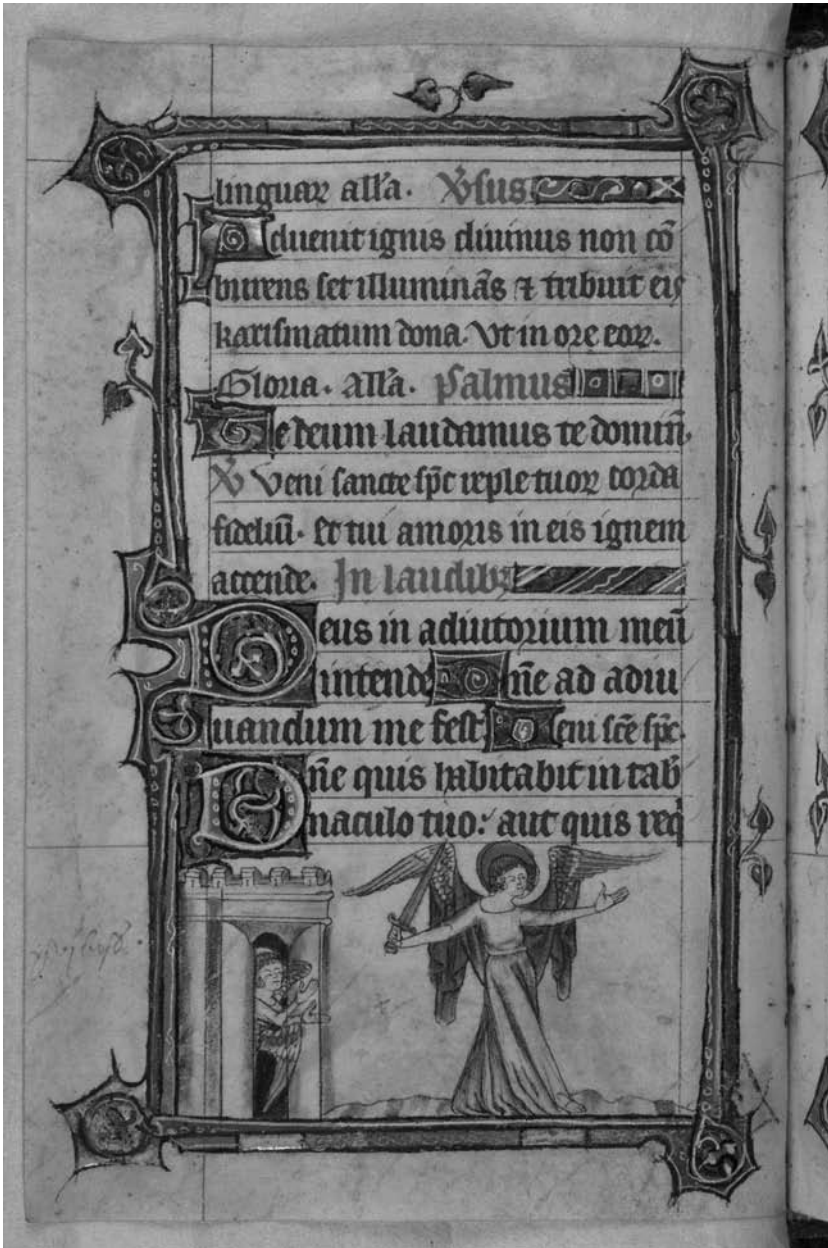 linguaꝝ all'a. X̄sus
Aduenit ignis diuinus non cō
burens set illuminās ⁊ tribuit eis
karismatum dona. Vt in ore eoꝝ.
Gloria. All'a. psalmus
Te deum laudamus te dominū.
X̄ Veni sancte sp̄c reple tuoꝝ corda
fideliū. Et tui amoris in eis ignem
accende. In laudibꝫ
Deus in adiutorium meū
intende Dn̄e ad adiu
uandum me fest. Veni sc̄e sp̄c.
Dn̄e quis habitabit in tab
naculo tuo: aut quis req̄